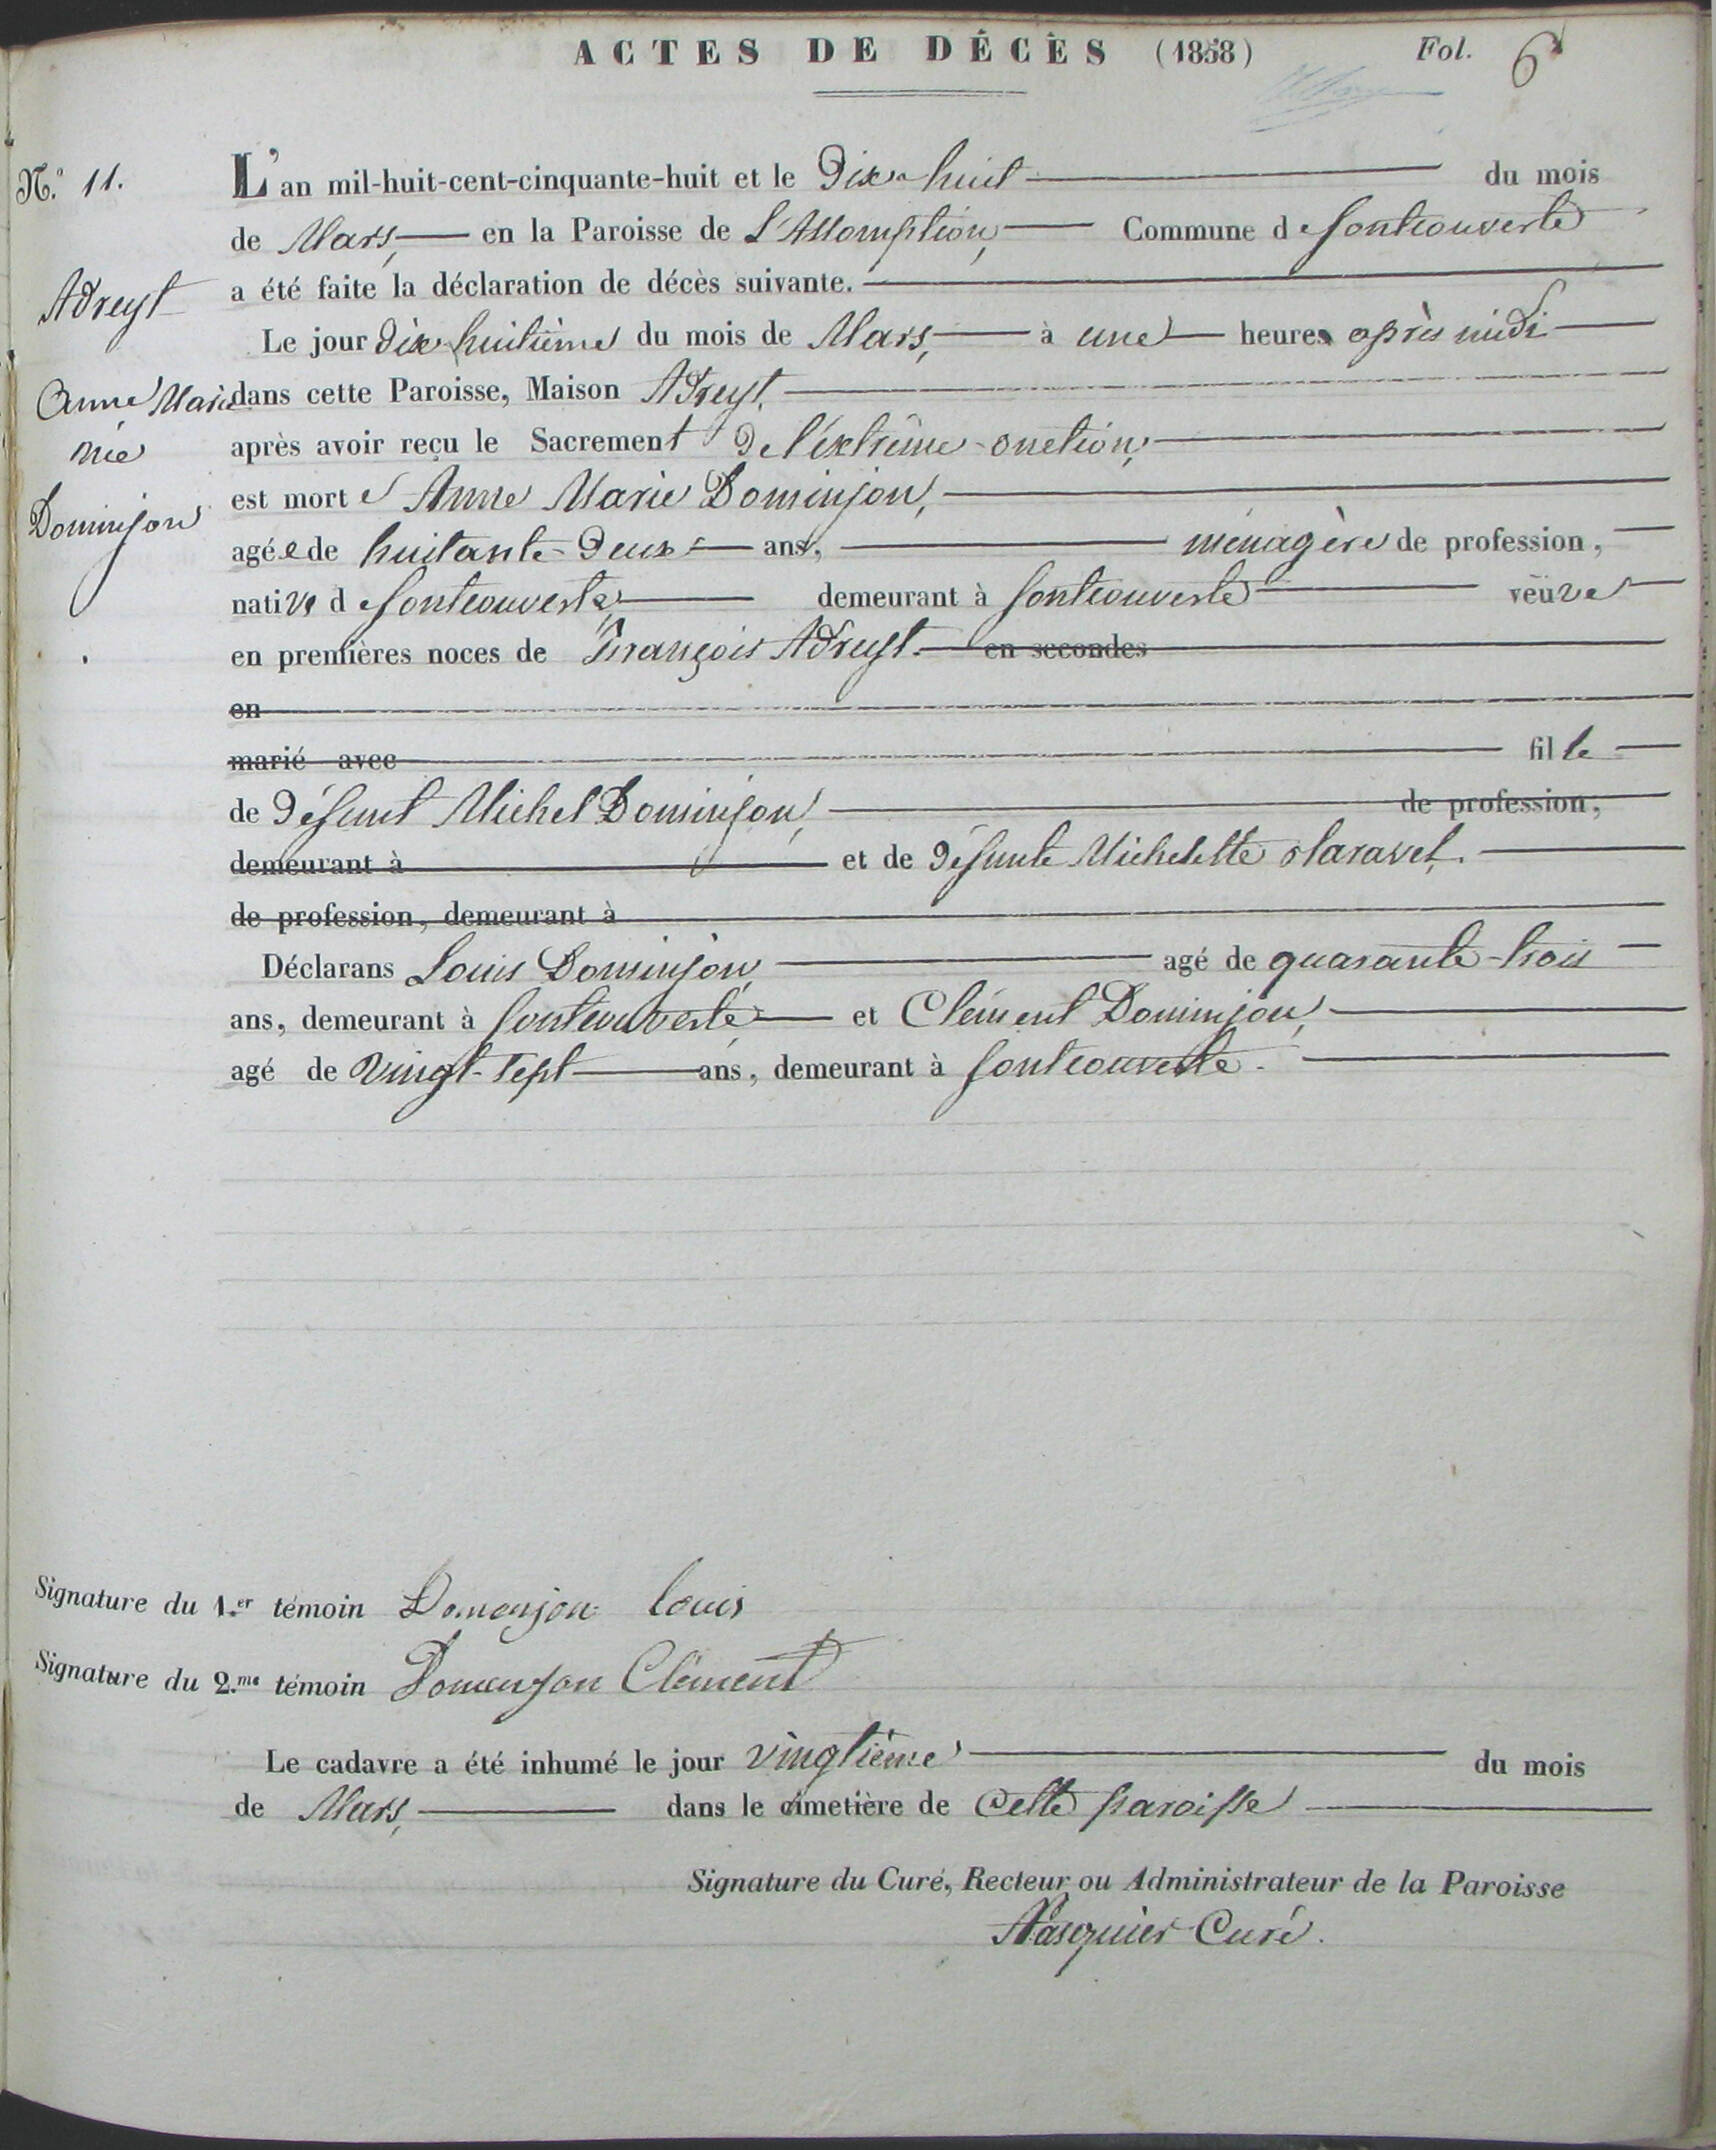 ACTES DE DÉCÈS (1858) Fol. 6
N.º 11.
L'an mil-huit-cent-cinquante-huit et le Dix-huit du mois
de Mars, en la Paroisse de L'Assomption, Commune de fontcouverte
a été faite la déclaration de décès suivante.
Adreyt
Le jour dix huitième du mois de Mars, à une heure après midi
Anne Marie
dans cette Paroisse, Maison Adreyt.
née
après avoir reçu le Sacrement De l'éxtrême-onction,
Dominjon
est morte Anne Marie Dominjon,
agée de huitante-Deux ans, ménagère de profession,
native de fontcouverte, demeurant à fontcouverte veuve
en premières noces de François Adreyt. en secondes
en
marié avec fille
de Défunt Michel Dominjon, de profession,
demeurant à et de Défunte Michelette
de profession, demeurant à
Déclarans Louis Dominjon, agé de quarante-trois
ans, demeurant à fontcouverte et Clément Dominjon,
agé de vingt-sept ans, demeurant à fontcouverte.
Signature du 1.er témoin Domenjon louis
Signature du 2.me témoin Domenjon Clément
Le cadavre a été inhumé le jour vingtième du mois
de Mars, dans le cimetière de cette paroisse
Signature du Curé, Recteur ou Administrateur de la Paroisse
Pasquier Curé.